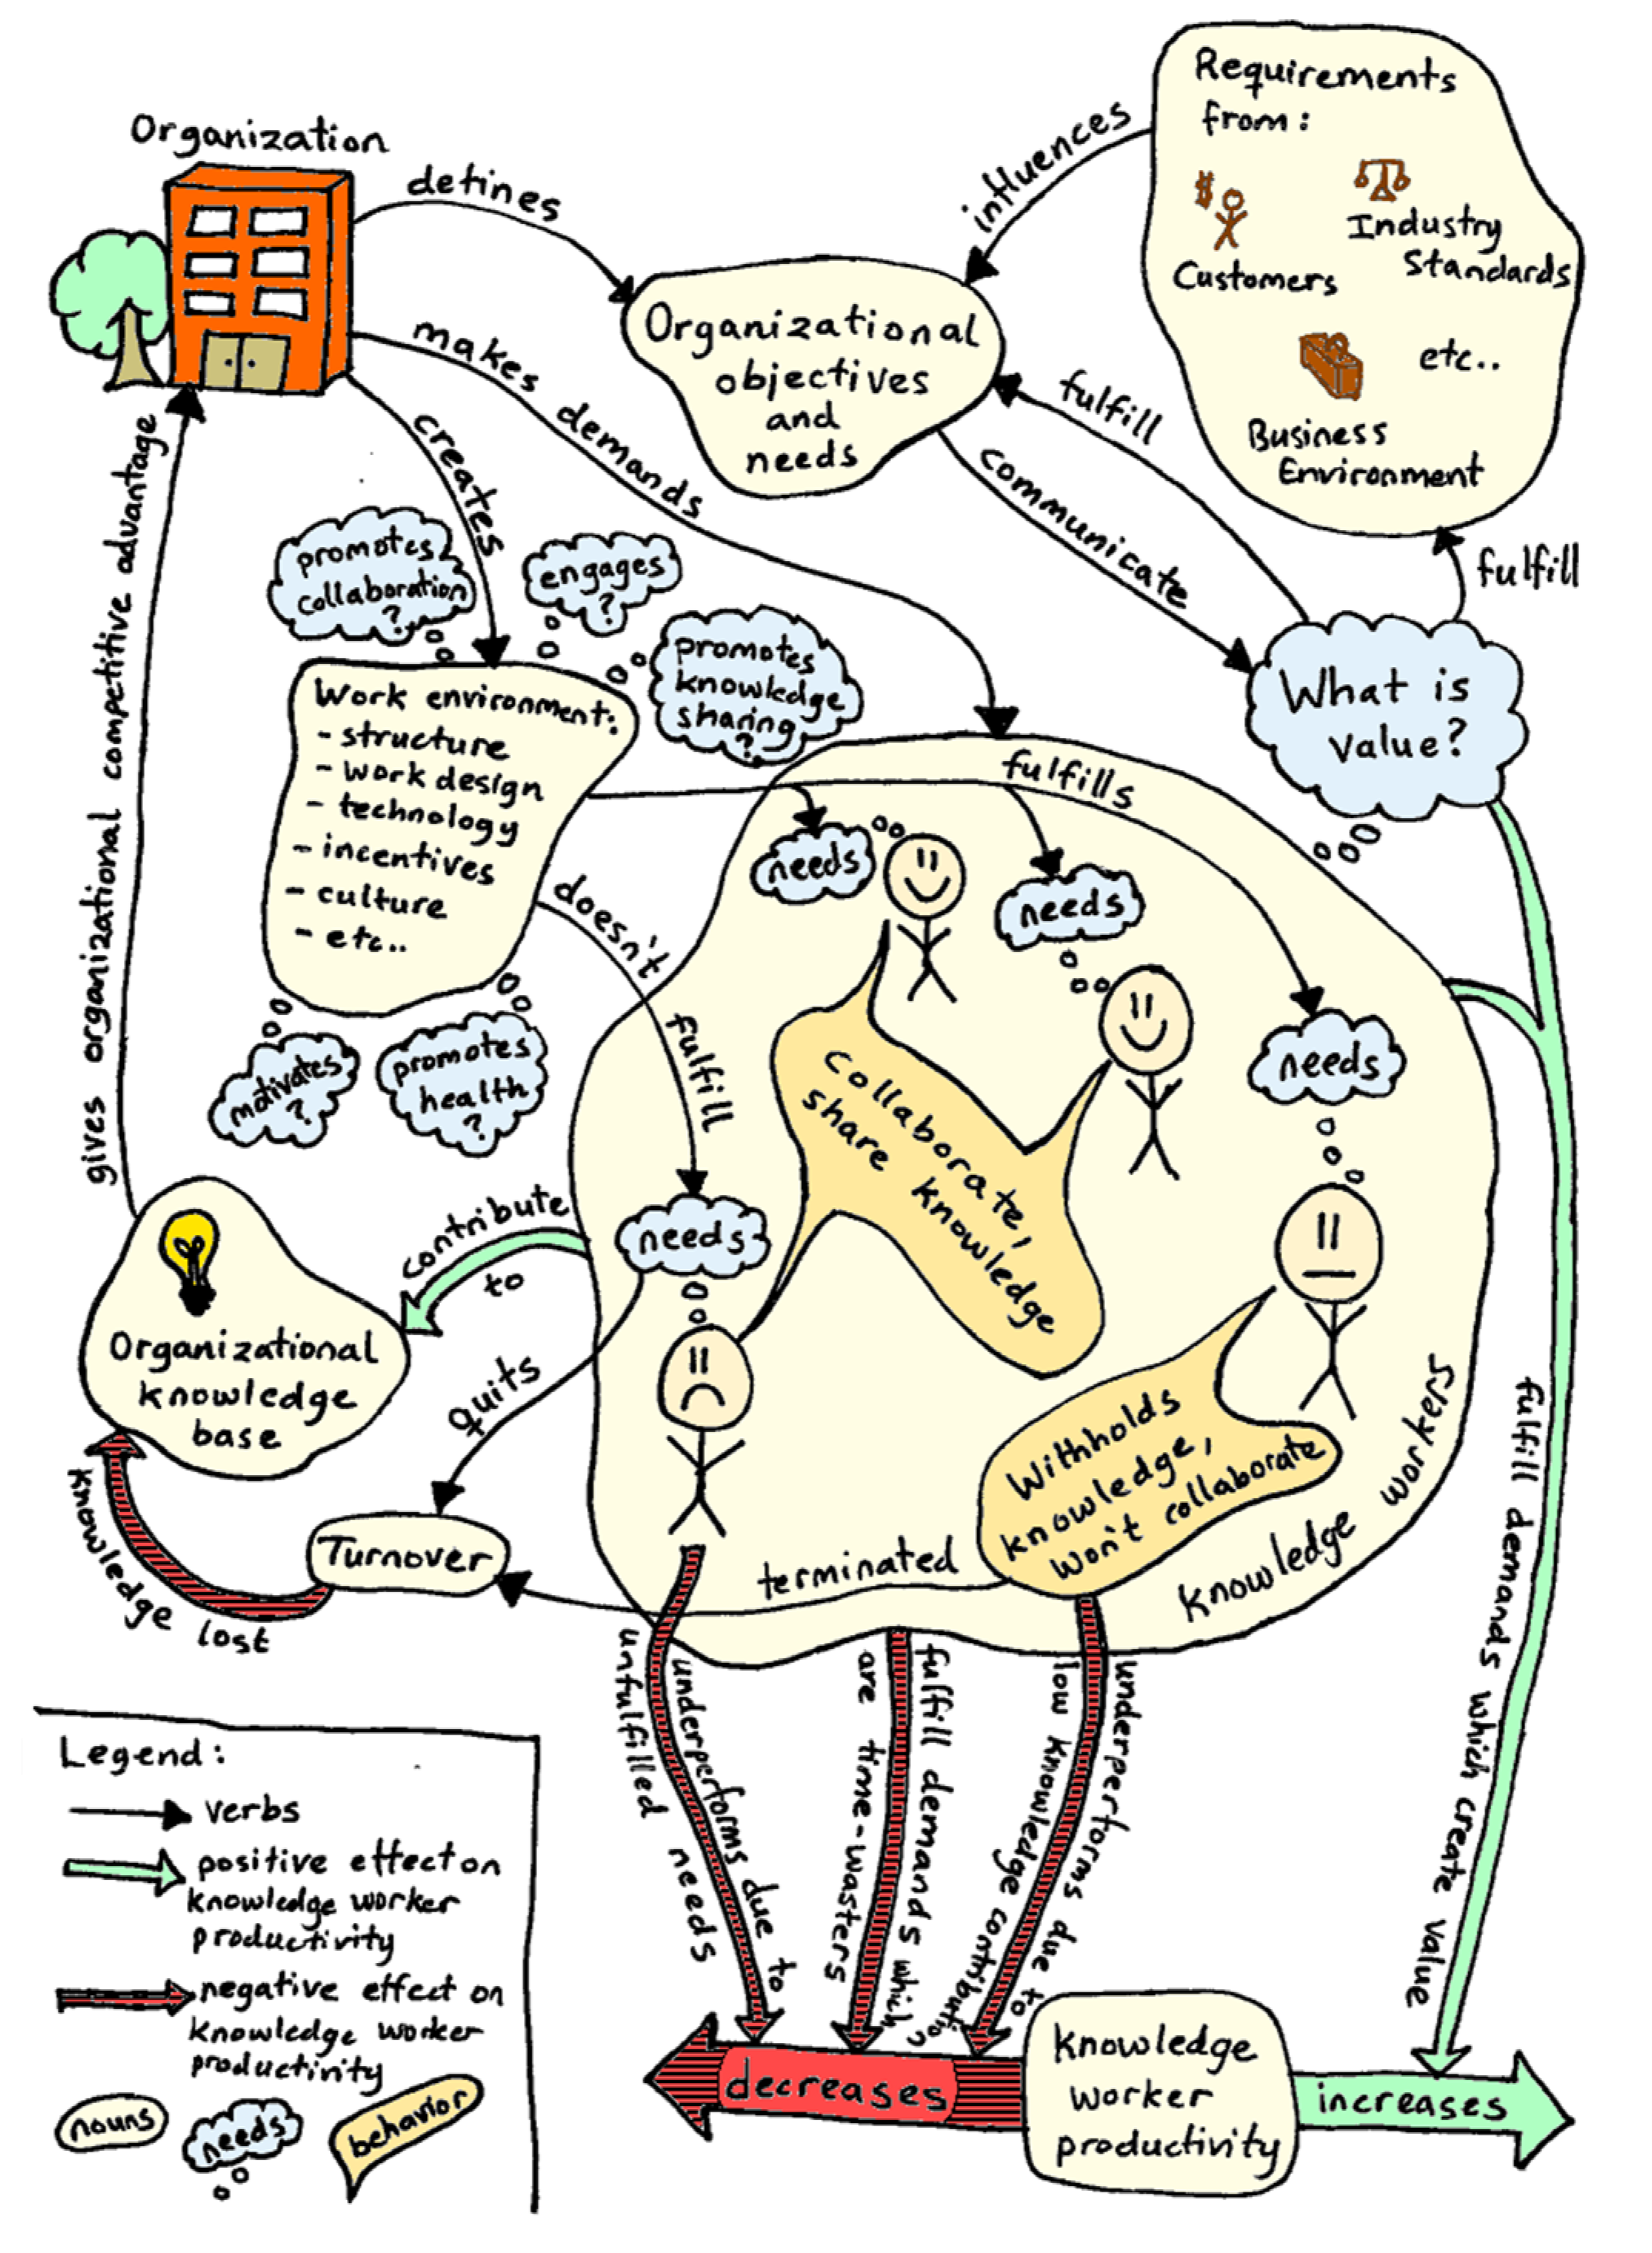 Organization
defines
influences
Requirements
from:
$
Customers
Industry
Standards
Business
Environment
etc..
Organizational
objectives
and
needs
makes demands
creates
fulfill
communicate
fulfill
What is
value?
promotes
collaboration
?
engages
?
promotes
knowledge
sharing
?
Work environment:
- structure
- work design
- technology
- incentives
- culture
- etc..
motivates
?
promotes
health
?
gives organizational competitive advantage
fulfills
doesn't fulfill
needs
needs
needs
needs
Collaborate,
share knowledge
Withholds
knowledge,
won't collaborate
knowledge workers
contribute
to
Organizational
knowledge
base
quits
Turnover
terminated
knowledge lost
underperforms due to
unfulfilled needs
fulfill demands which
are time-wasters
underperforms due to
low knowledge contribution
fulfill demands which create value
decreases
knowledge
worker
productivity
increases
Legend:
verbs
positive effect on
knowledge worker
productivity
negative effect on
knowledge worker
productivity
nouns
needs
behavior